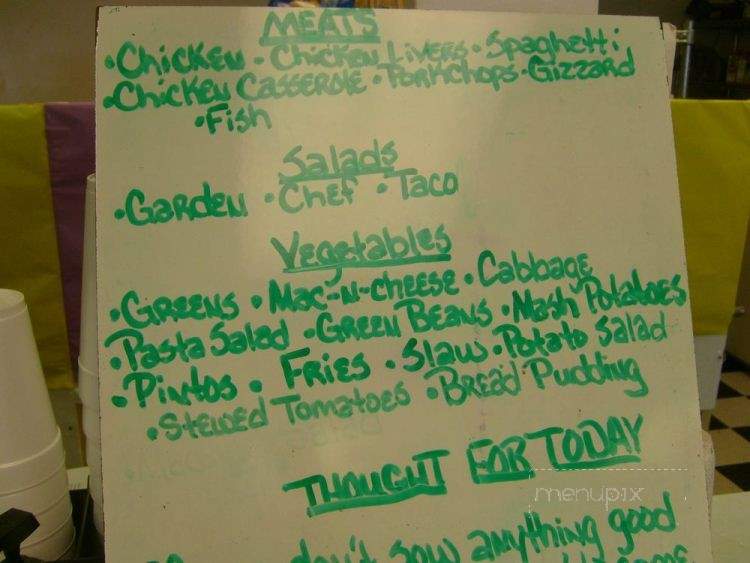 MEATS
• Chicken • Chicken Livers • Spaghetti
• Chicken Casserole • Porkchops • Gizzard
• Fish
Salads
• Garden • Chef • Taco
Vegetables
• Greens • Mac-n-cheese • Cabbage
• Pasta Salad • Green Beans • Mash Potatoes
• Pintos • Fries • Slaw • Potato Salad
• Stewed Tomatoes • Bread Pudding
THOUGHT FOR TODAY
menupix
don't sow anything good